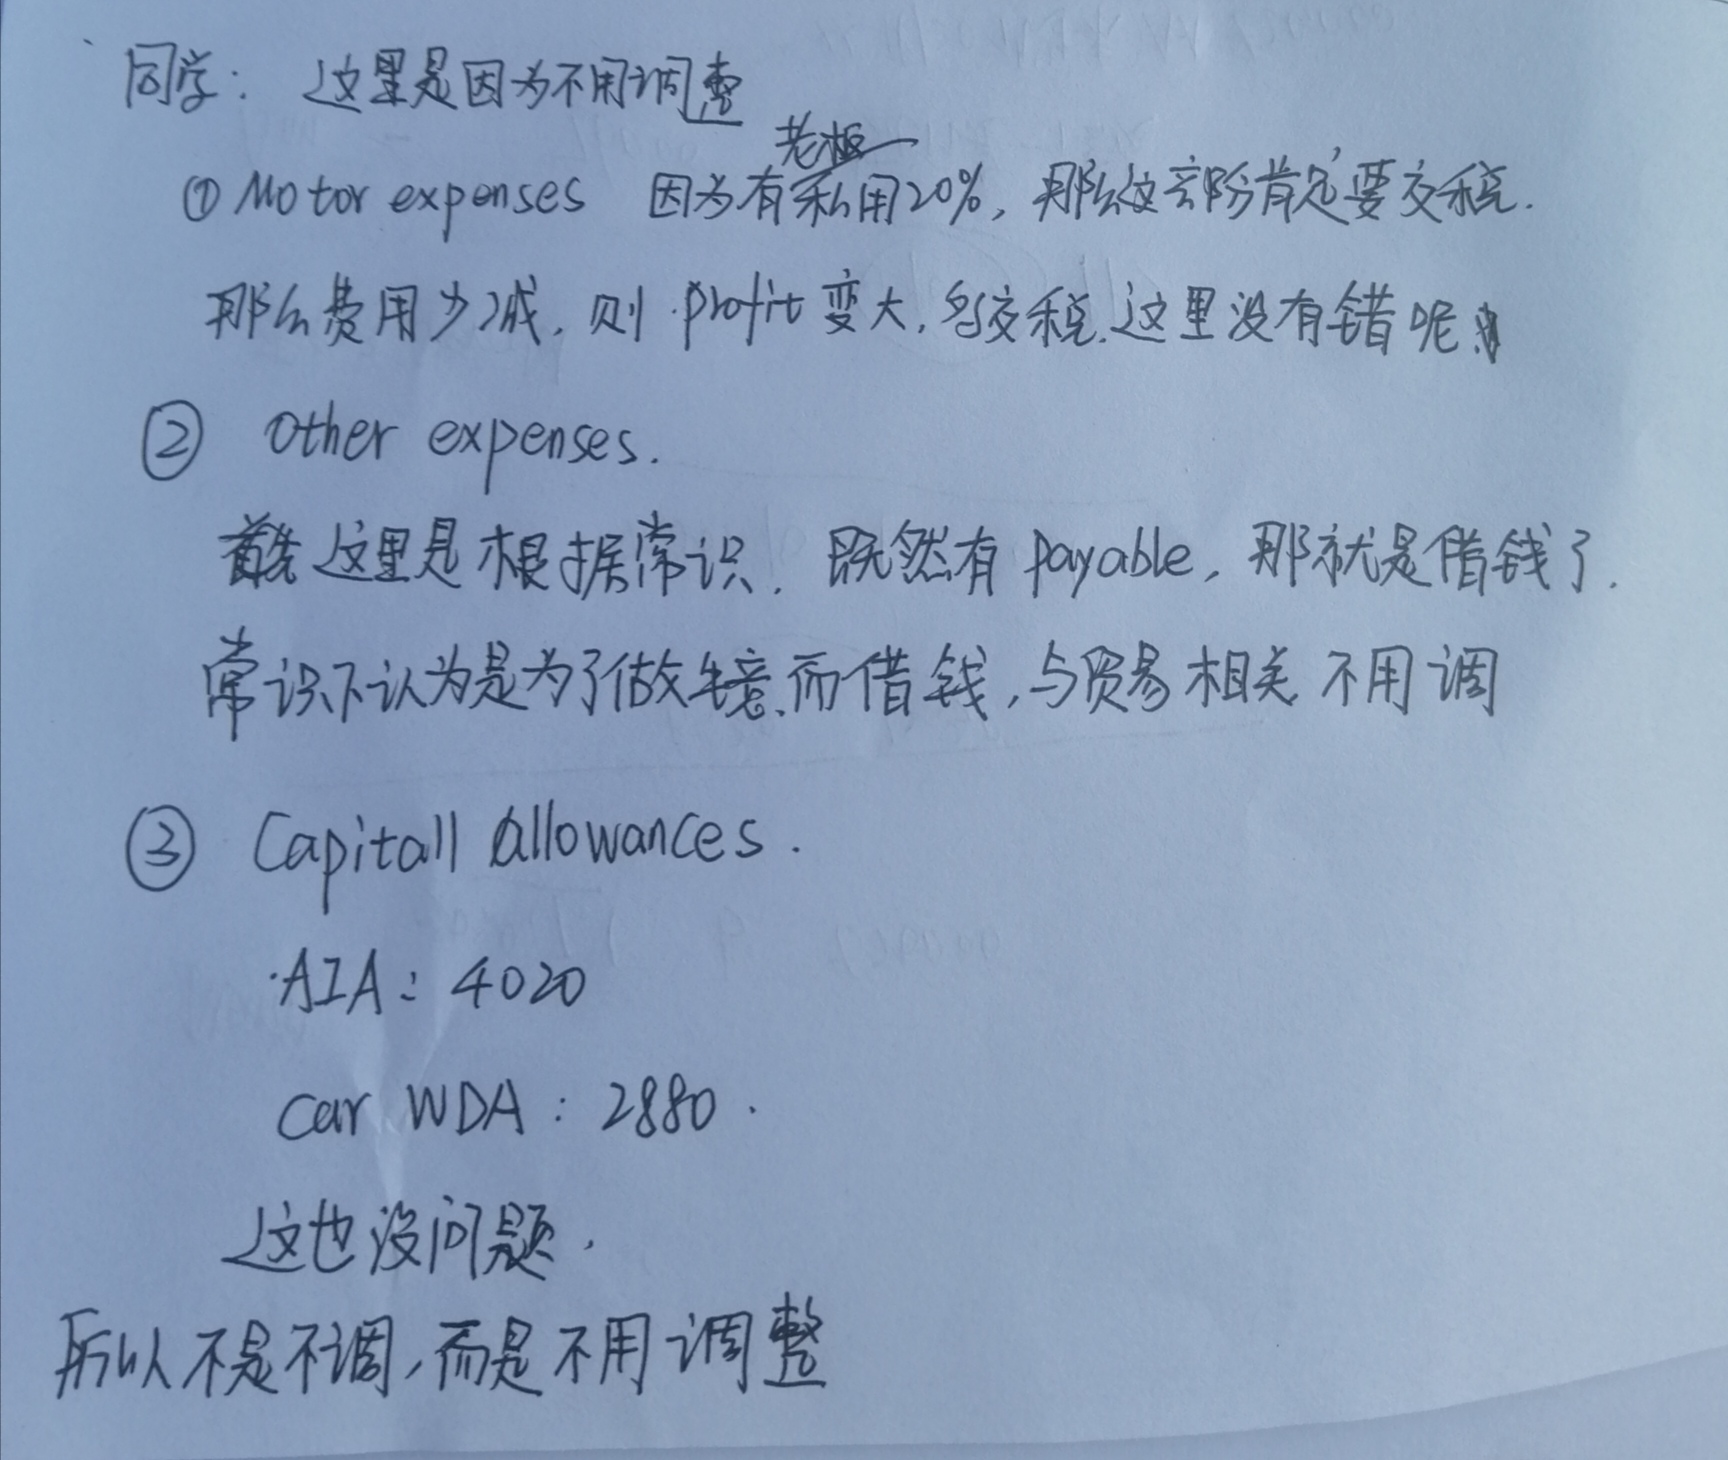 同学: 这里是因为不用调整
老板
① Motor expenses 因为有私用20%, 那么这部份肯定要交税.
那么费用少减, 则 profit 变大, 多交税. 这里没有错呢
② other expenses.
首先 这里是根据常识. 既然有 payable, 那就是借钱了.
常识下认为是为了做生意而借钱, 与贸易相关 不用调
③ Capitall allowances.
AIA: 4020
Car WDA: 2880.
这也没问题.
所以不是不调, 而是不用调整